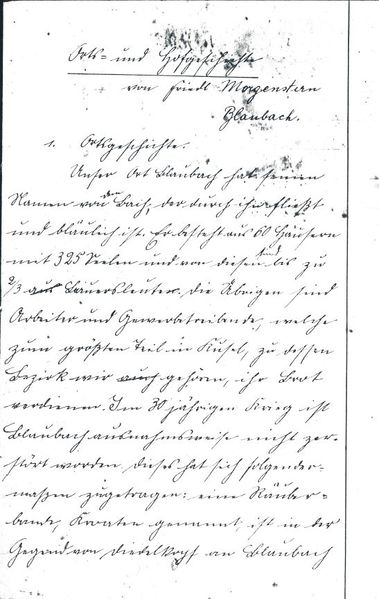 Orts- und Hofgeschichte
von Friedl Morgenstern
Blaubach.
1. Ortsgeschichte.
Unser Ort Blaubach hat seinen
Namen von dem Bach, der durch ihn fließt
und bläulich ist. Er besteht aus 60 Häusern
mit 325 Seelen und von diesen sind bis zu
2/3 aus Bauersleuten. Die Übrigen sind
Arbeiter und Gewerbetreibende, welche
zum größten Teil in Kusel, zu dessen
Bezirk wir auch gehören, ihr Brot
verdienen. Im 30 jährigen Krieg ist
Blaubach ausnahmsweise nicht zer-
stört worden, dieses hat sich folgender-
maßen zugetragen: eine Räuber-
bande, Kroaten genannt, ist in der
Gegend von Diedelkopf an Blaubach